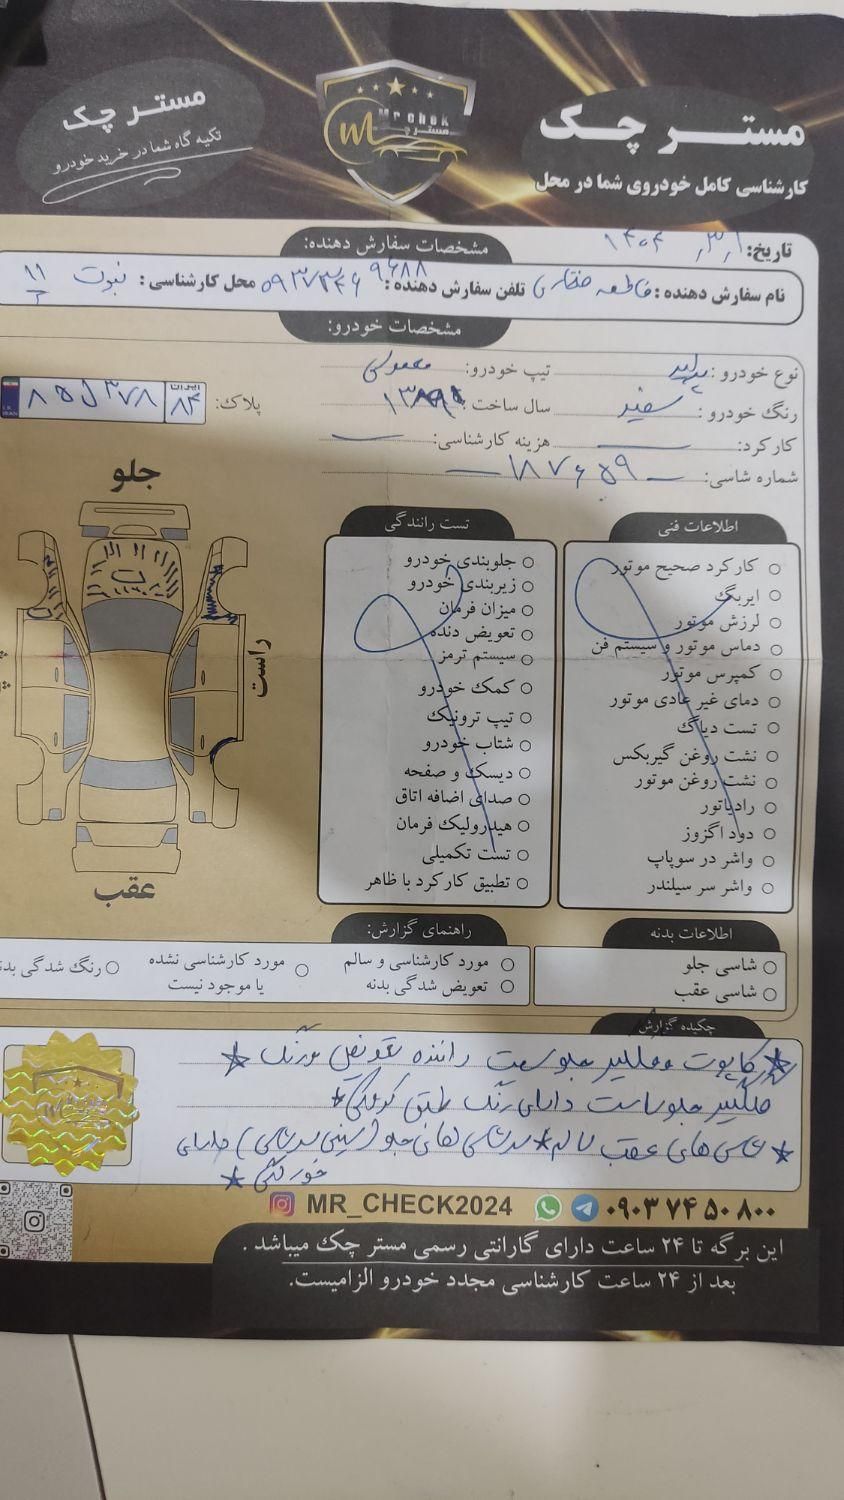 مستر چک
کارشناسی کامل خودروی شما در محل
Mr chek
مستر چک
مستر چک
تکیه گاه شما در خرید خودرو
تاریخ: ۱۴۰۴/۳/۱
مشخصات سفارش دهنده:
نام سفارش دهنده: فاطمه تلفن سفارش دهنده: محل کارشناسی: نبوت ۱۱
مشخصات خودرو:
نوع خودرو: پراید تیپ خودرو: معمولی
رنگ خودرو: سفید سال ساخت:
پلاک: ایران ۸۴ ۸۵ ل ۳۷۸
کارکرد: هزینه کارشناسی:
شماره شاسی: ۱۸۷۶۵۹
جلو
راست
عقب
تست رانندگی
جلوبندی خودرو
زیربندی خودرو
میزان فرمان
تعویض دنده
سیستم ترمز
کمک خودرو
تیپ ترونیک
شتاب خودرو
دیسک و صفحه
صدای اضافه اتاق
هیدرولیک فرمان
تست تکمیلی
تطبیق کارکرد با ظاهر
اطلاعات فنی
کارکرد صحیح موتور
ایربگ
لرزش موتور
دماس موتور و سیستم فن
کمپرس موتور
دمای غیر عادی موتور
تست دیاگ
نشت روغن گیربکس
نشت روغن موتور
رادیاتور
دود اگزوز
واشر در سوپاپ
واشر سر سیلندر
اطلاعات بدنه
شاسی جلو
شاسی عقب
راهنمای گزارش:
مورد کارشناسی و سالم
تعویض شدگی بدنه
مورد کارشناسی نشده
یا موجود نیست
رنگ شدگی بدنه
چکیده گزارش
کاپوت و گلگیر جلو سمت راننده تعویض و رنگ *
گلگیر جلو راست دارای رنگ *
* شاسی های عقب سالم * سرشاسی های جلو (سینی سرشاسی) دارای
خوردگی *
MR_CHECK2024
۰۹۰۳ ۷۴ ۵۰ ۸۰۰
این برگه تا ۲۴ ساعت دارای گارانتی رسمی مستر چک میباشد .
بعد از ۲۴ ساعت کارشناسی مجدد خودرو الزامیست.